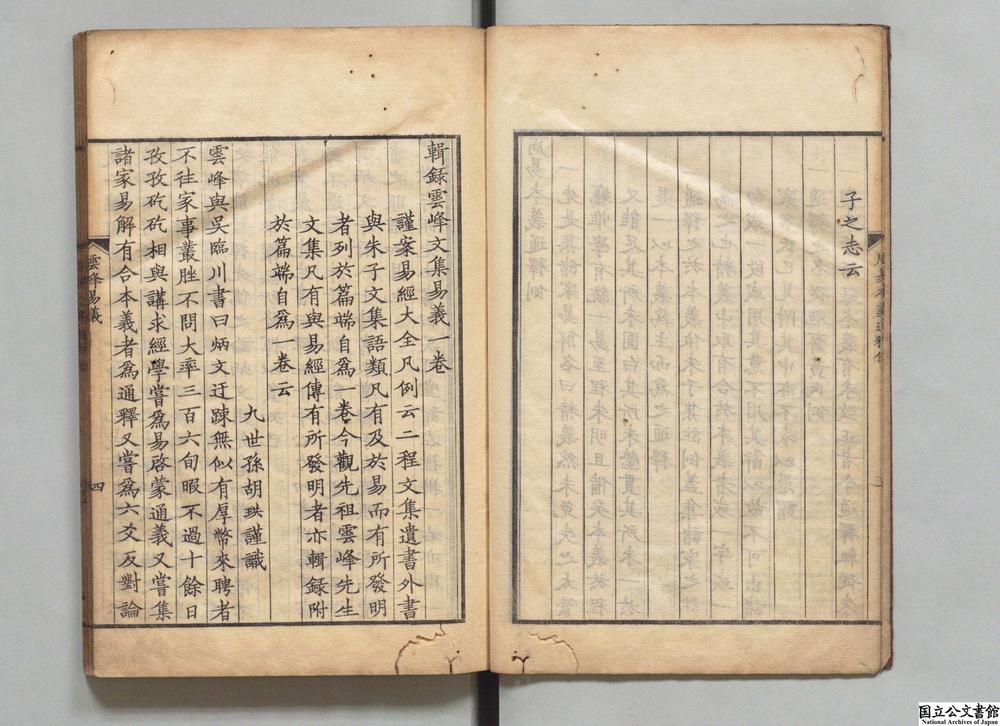 子之志云
輯錄雲峰文集易義一卷
謹案易經大全凡例云二程文集遺書外書
與朱子文集語類凡有及於易而有所發明
者列於篇端自爲一卷今觀先祖雲峰先生
文集凡有與易經傳有所發明者亦輯録附
於篇端自爲一卷云
九世孫胡珙謹識
雲峰與吳臨川書曰炳文迂踈無似有厚幣來聘者
不徃家事叢脞不問大率三百六旬暇不過十餘日
孜孜矻矻相與講求經學嘗爲易啓蒙通義又嘗集
諸家易解有合本義者爲通釋又嘗爲六爻反對論
雲峰易義
四
国立公文書館
National Archives of Japan